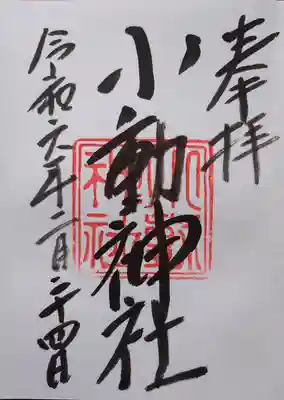 奉拝
小動神社
令和六年二月二十四日
小動神社